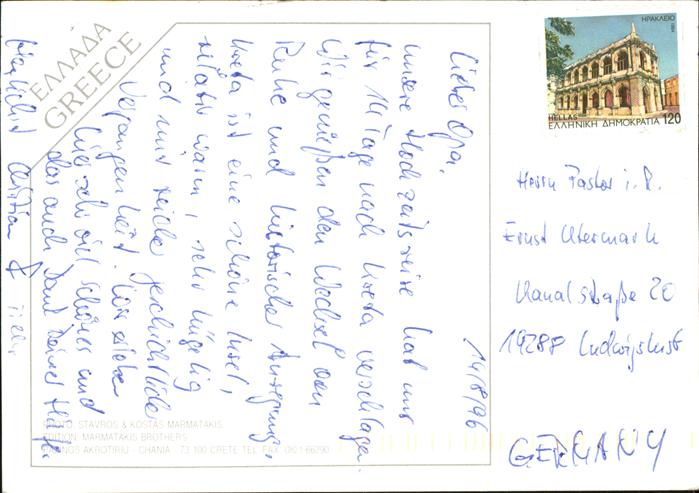 ΕΛΛΑΔΑ
GREECE
14/8/96
Lieber Opa,
unsere Hochzeitsreise hat uns
für 14 Tage nach Kreta verschlagen
Wir genießen den Wechsel von
Ruhe und historischer Anregung.
Kreta ist eine schöne Insel,
relativ warm, sehr hügelig
und mit reicher geschichtlicher
Vergangenheit. Wir erleben
hier sehr viel schönes und
das auch Dank Deiner Hilfe.
Herzlichst
PHOTO: STAVROS & KOSTAS MARMATAKIS
EDITION: MARMATAKIS BROTHERS
AKROTIRIU - CHANIA - 73 100 CRETE TEL. FAX
ΗΡΑΚΛΕΙΟ
HELLAS
ΕΛΛΗΝΙΚΗ ΔΗΜΟΚΡΑΤΙΑ 120
Herrn Pastor i. R.
Ernst Utermark
Kanalstraße 20
19288 Ludwigslust
GERMANY